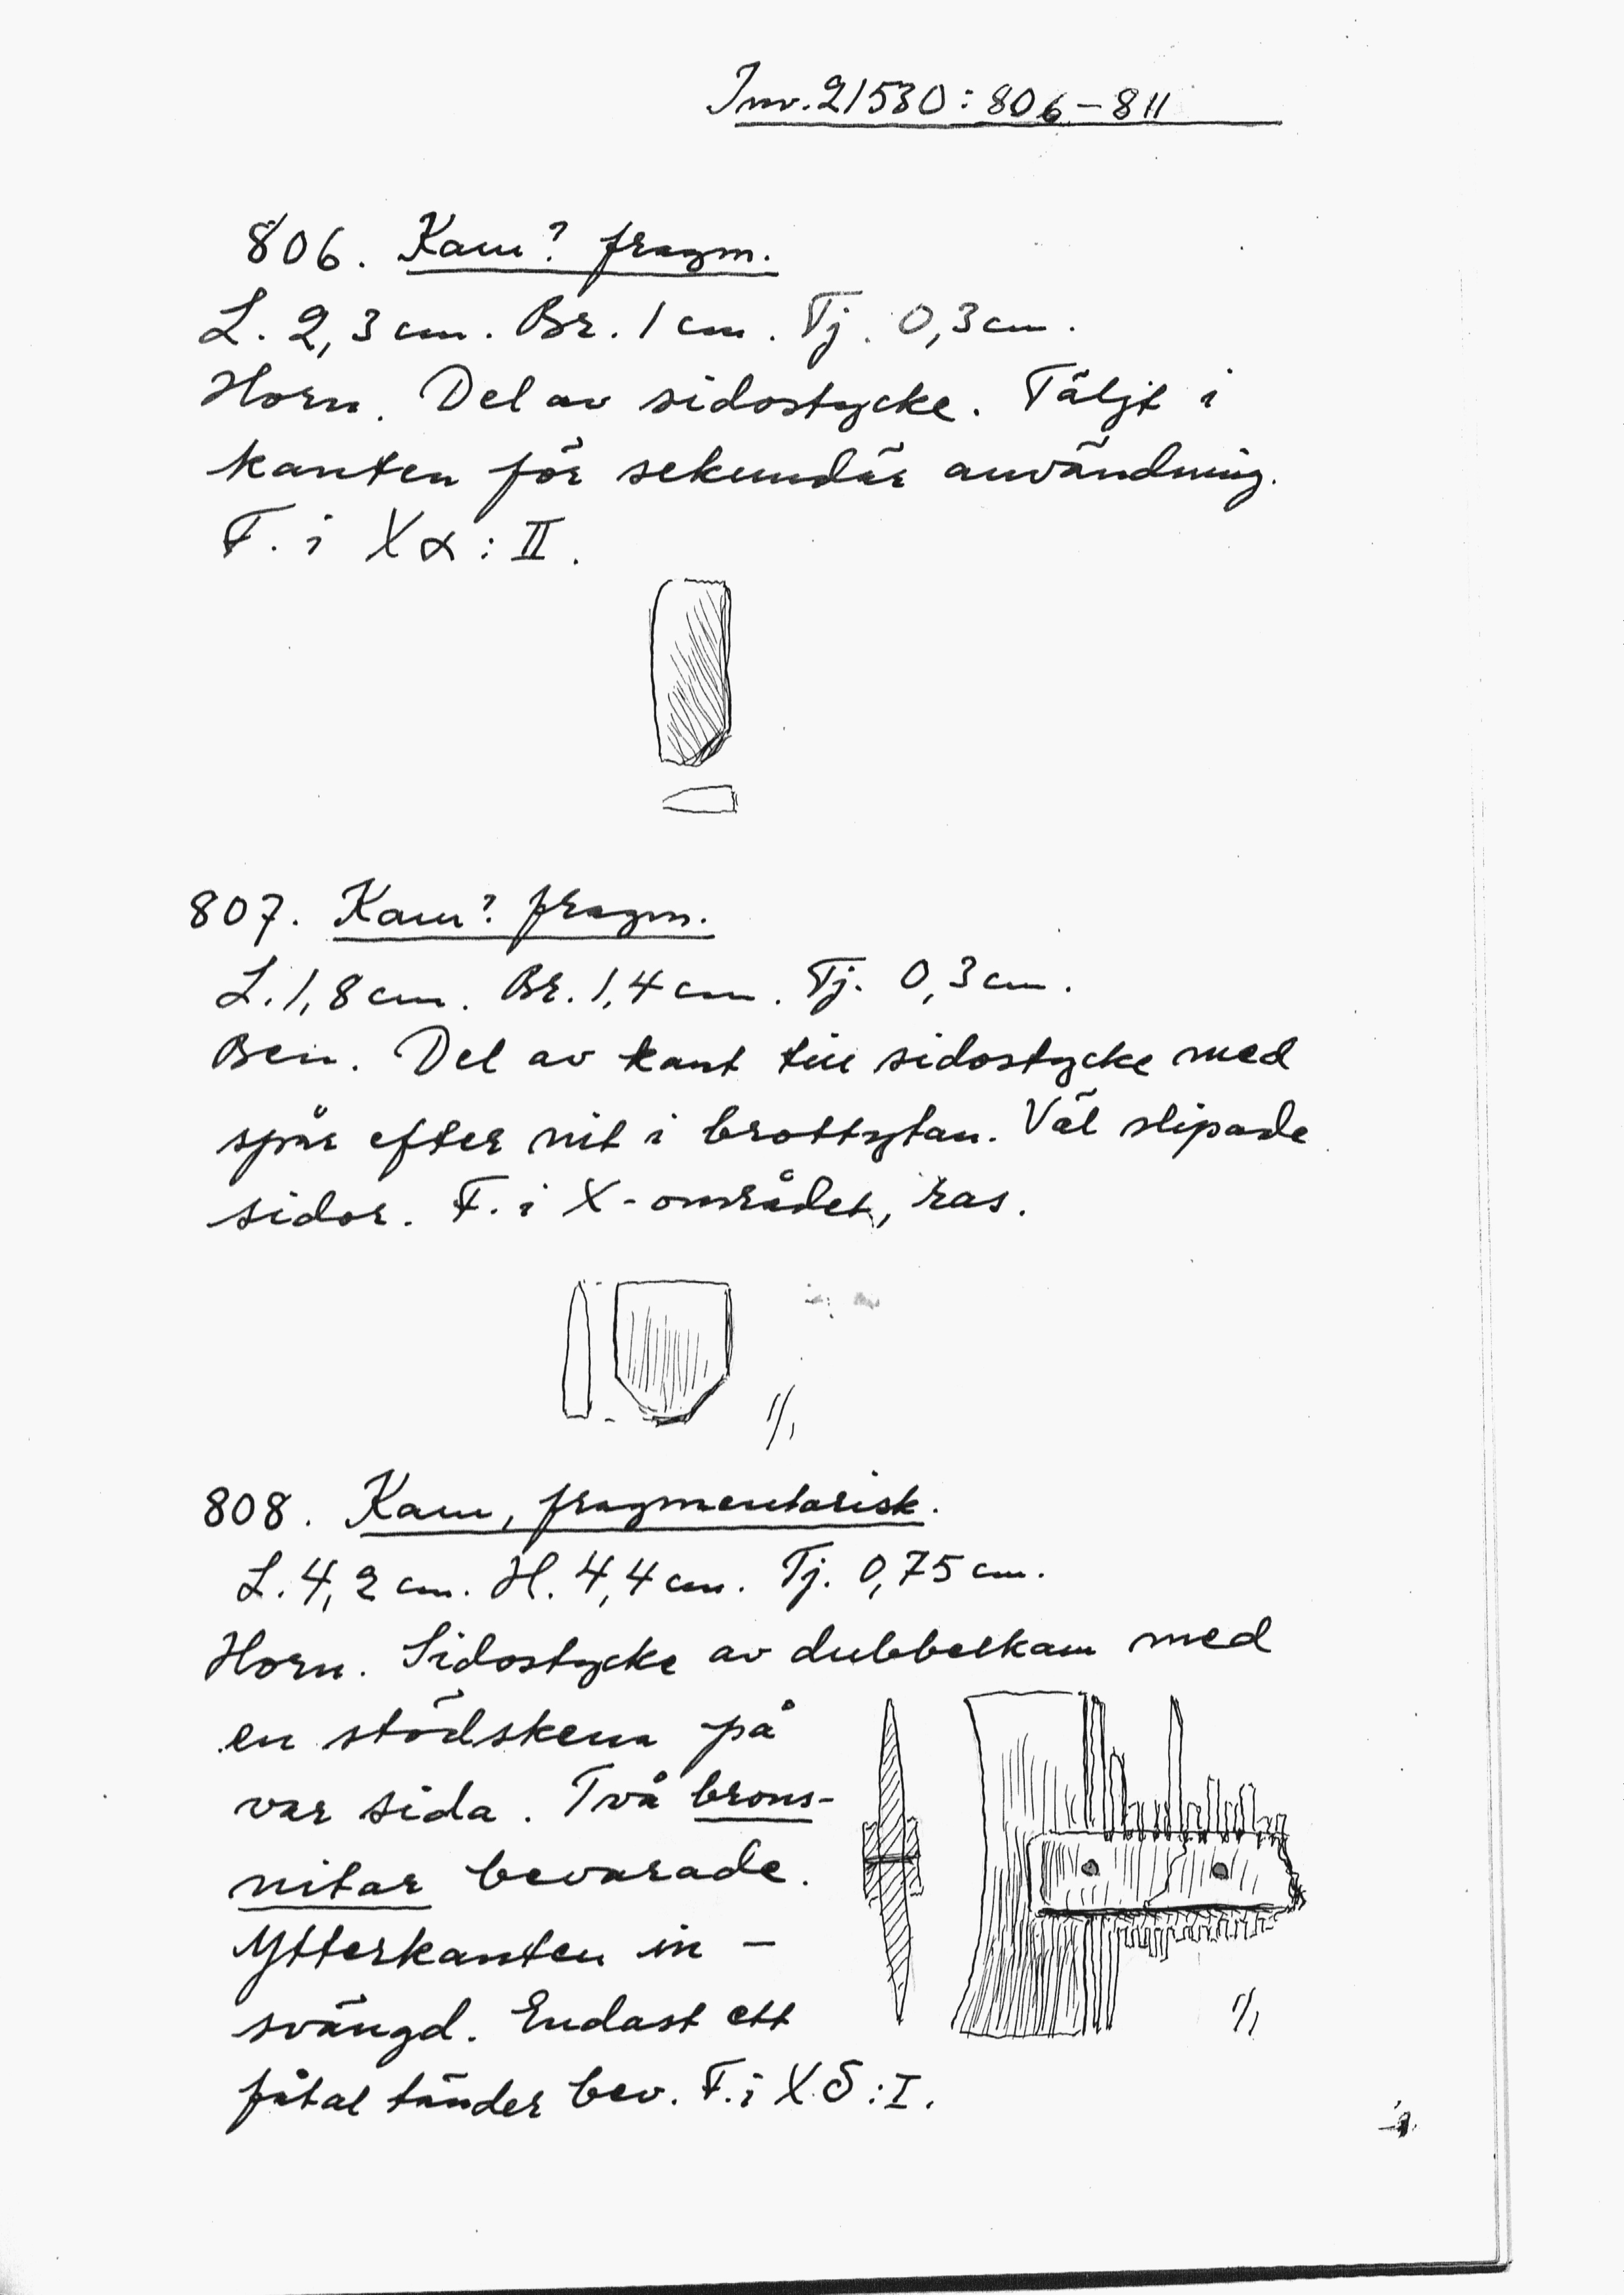 Inv. 21530:806-811
806. Kam? fragm.
L. 2,3 cm. Br. 1 cm. Tj. 0,3 cm.
Horn. Del av sidostycke. Täljt i
kanten för sekundär användning.
F. i Xα:II.
807. Kam? fragm.
L. 1,8 cm. Br. 1,4 cm. Tj. 0,3 cm.
Ben. Del av kant till sidostycke med
spår efter nit i brottytan. Väl slipade
sidor. F. i X-området, ras.
1/1
808. Kam, fragmentarisk.
L. 4,2 cm. H. 4,4 cm. Tj. 0,75 cm.
Horn. Sidostycke av dubbelkam med
en stödskena på
var sida. Två brons-
nitar bevarade.
Ytterkanten in-
svängd. Endast ett
fåtal tänder bev. F. i Xδ:I.
1/1